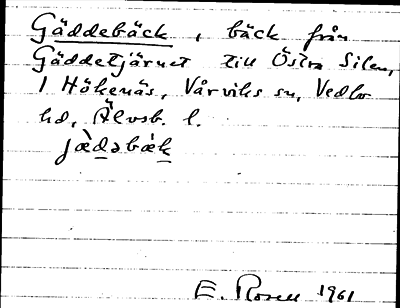 Gäddebäck, bäck från
Gäddetjärnet till Östra Silen,
1 Hökenäs, Vårviks sn, Vedbo
hd, Älvsb. l.
jæ̀dəbæ̀k
E. Rosell 1961